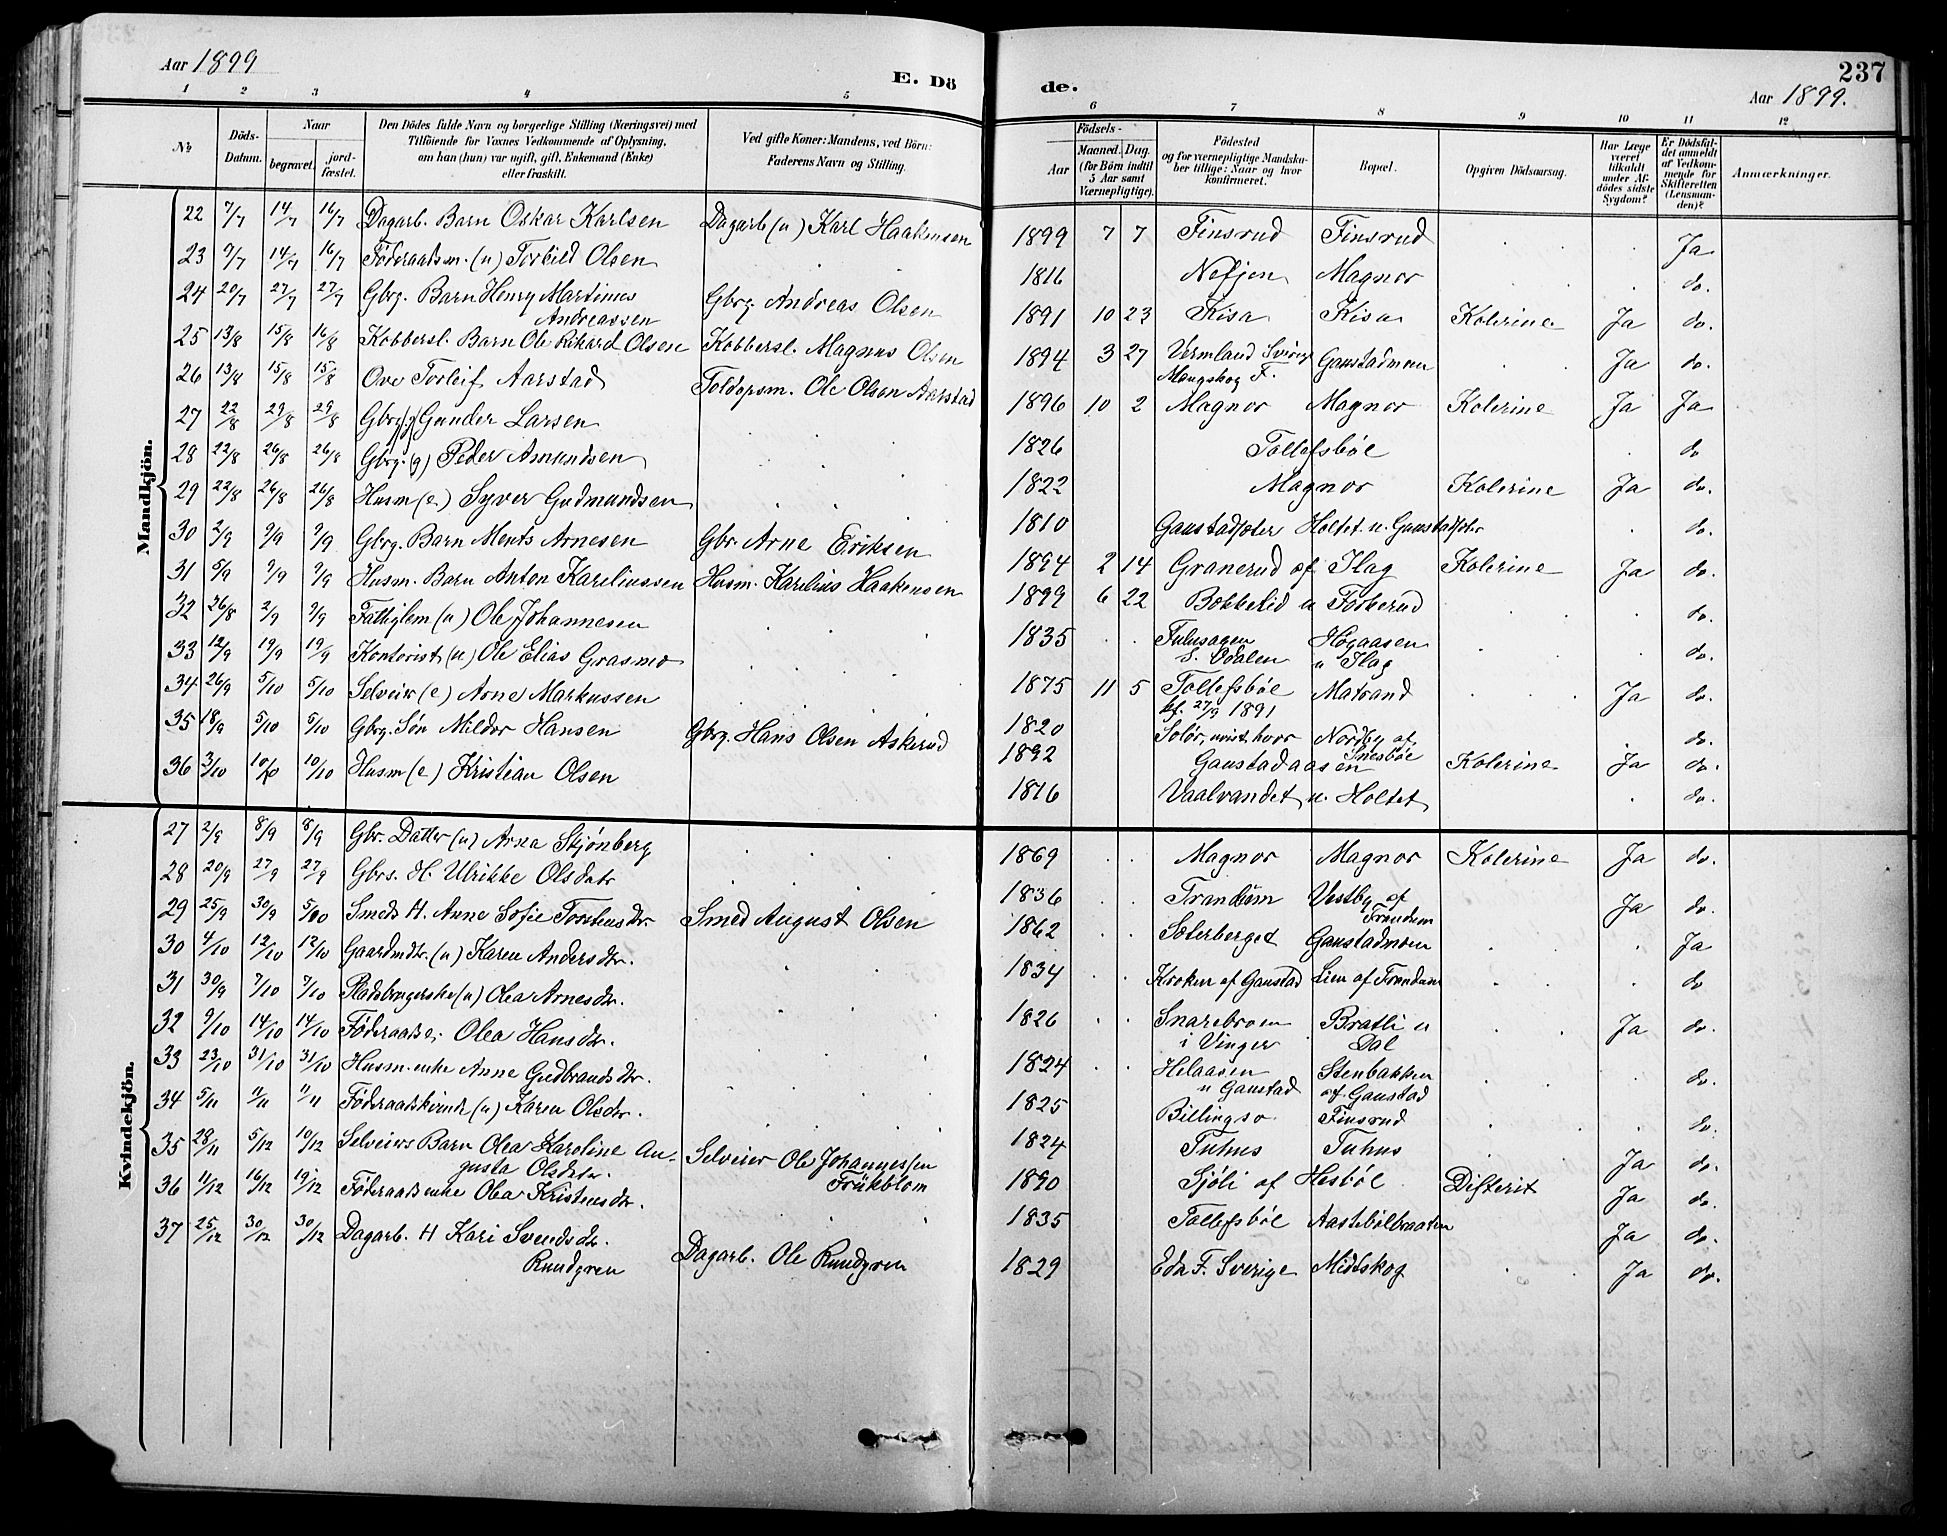 Aar 1899
E. Dö
de.
237
Aar 1899.
1 2 3 4 5 6 7 8 9 10 11 12
No
Döds-Datum.
Naar
begravet.
jordfæstet.
Den Dödes fulde Navn og borgerlige Stilling (Næringsvei) med
Tilföiende for Voxnes Vedkommende af Oplysning,
om han (hun) var ugift, gift, Enkemand (Enke)
eller fraskilt.
Ved gifte Koner: Mandens, ved Börn:
Faderens Navn og Stilling.
Födsels-
Aar
Maaned. Dag.
(for Börn indtil
5 Aar samt
Værnepligtige).
Födested
og for værnepligtige Mandskaber tillige: Naar og hvor
konfirmeret.
Bopæl.
Opgiven Dödsaarsag.
Har Læge
været
tilkaldt
under Afdödes sidste
Sygdom?
Er Dödsfaldet anmeldt
af Vedkommende for
Skifteretten
(Lensmanden)?
Anmærkninger.
Mandkjön.
22 7/7 14/7 16/7 Dagarb. Barn Oskar Karlsen Dagarb (u) Karl Haakensen 1899 7 7 Finsrud Finsrud Ja
23 9/7 14/7 16/7 Föderaadsm. (u) Torbild Olsen 1816 Nefjen Magnor do.
24 20/7 27/7 27/7 Gbrg. Barn Henry Martinus Andreassen Gbrg. Andreas Olsen 1891 10 23 Kisa Kisa Kolerine Ja do.
25 13/8 15/8 16/8 Kobbersl. Barn Ole Rikard Olsen Kobbersl. Magnus Olsen 1894 3 27 Vermland Sverige Mangskog F. Gaustadmoen Ja do.
26 13/8 15/8 15/8 Ove Torleif Aarstad Toldopsm. Ole Olsen Aarstad 1896 10 2 Magnor Magnor Kolerine Ja Ja
27 22/8 29/8 29/8 Gbrg. (g) Gunder Larsen 1826 Tollefsböl do
28 22/8 26/8 26/8 Gbrg. (g) Peder Amundsen 1822 Magnor Kolerine Ja do.
29 22/8 26/8 26/8 Husm (e) Syver Gudmundsen 1810 Gaustadsæter Holtet u. Gaustadsæter do.
30 2/9 9/9 9/9 Gbrg. Barn Ments Arnesen Gbr. Arne Eriksen 1894 2 14 Granerud af Flag Kolerine Ja do.
31 5/9 9/9 9/9 Husm. Barn Anton Kareliussen Husm. Karelius Haakensen 1899 6 22 Bokkelid u Forberud do.
32 26/8 2/9 9/9 Fattiglem (u) Ole Johannesen 1835 Fulusagen S. Odalen Högaasen u Flag do.
33 12/9 19/9 19/9 Kontorist (u) Ole Elias Grasmo 1875 11 5 Tollefsböl kf. 27/9 1891 Matrand Ja do.
34 26/9 5/10 5/10 Selveier (e) Arne Markussen 1820 Solör, uvist hvor Nordby af Snesböl do.
35 18/9 5/10 5/10 Gbrg. Søn Mildor Hansen Gbrg. Hans Olsen Askerud 1892 Gaustadaasen Kolerine Ja do.
36 3/10 10/10 10/10 Husm (e) Kristian Olsen 1816 Vaalvandet u. Holtet do.
Kvindekjön.
27 2/9 8/9 8/9 Gbr. Datter (u) Arna Stjönberg 1869 Magnor Magnor Kolerine Ja do.
28 20/9 27/9 27/9 Gbrs. H. Ulrikke Olsdatr 1836 Trandum Vestby af Trandum Ja do.
29 25/9 30/9 5/10 Smeds H. Anne Sofie Torstensdr. Smed August Olsen 1862 Sæterberget Gaustadmoen Ja
30 4/10 12/10 12/10 Gaardmdtr. (u) Karen Andersdtr. 1834 Kroken af Gaustad Lien af Trandum do
31 30/9 7/10 7/10 Pladsbrugerske (u) Olea Arnesdtr. 1826 Snarebroen i Vinger Bratli u Dal Ja do.
32 9/10 14/10 14/10 Föderaadse. Olea Hansdtr. 1824 Helaasen u Gaustad Stenbakken af Gaustad do.
33 23/10 31/10 31/10 Husm. enke Anne Gudbrandsdtr. 1825 Billingso Finsrud do.
34 5/11 11/11 11/11 Föderaadskvinde (u) Karen Olsdtr. 1824 Tuhus Tuhus Ja do.
35 28/11 5/12 10/12 Selveiers Barn Olea Karoline Augusta Olsdtr. Selveier Ole Johannessen Trükblom 1890 Sjöli af Hesböl Difterit Ja do.
36 11/12 16/12 19/12 Föderaadsenke Olea Kristensdtr. 1835 Tollefsböl Aastebölbraaten Ja do.
37 25/12 30/12 30/12 Dagarb. H Kari Svendsdtr. Rundgren Dagarb. Ole Rundgren 1829 Eda F. Sverige Midtskog Ja do.